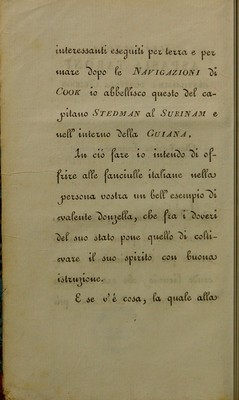 interessanti eseguiti per terra e per
mare dopo le NAVIGAZIONI di
COOK io abbellisco questo del ca-
pitano STEDMAN al SURINAM e
nell' interno della GUIANA.
In ciò fare io intendo di of-
frire alle fanciulle italiane nella
persona vostra un bell' esempio di
valente donzella, che fra i doveri
del suo stato pone quello di colti-
vare il suo spirito con buona
istruzione.
E se v'è cosa, la quale alla